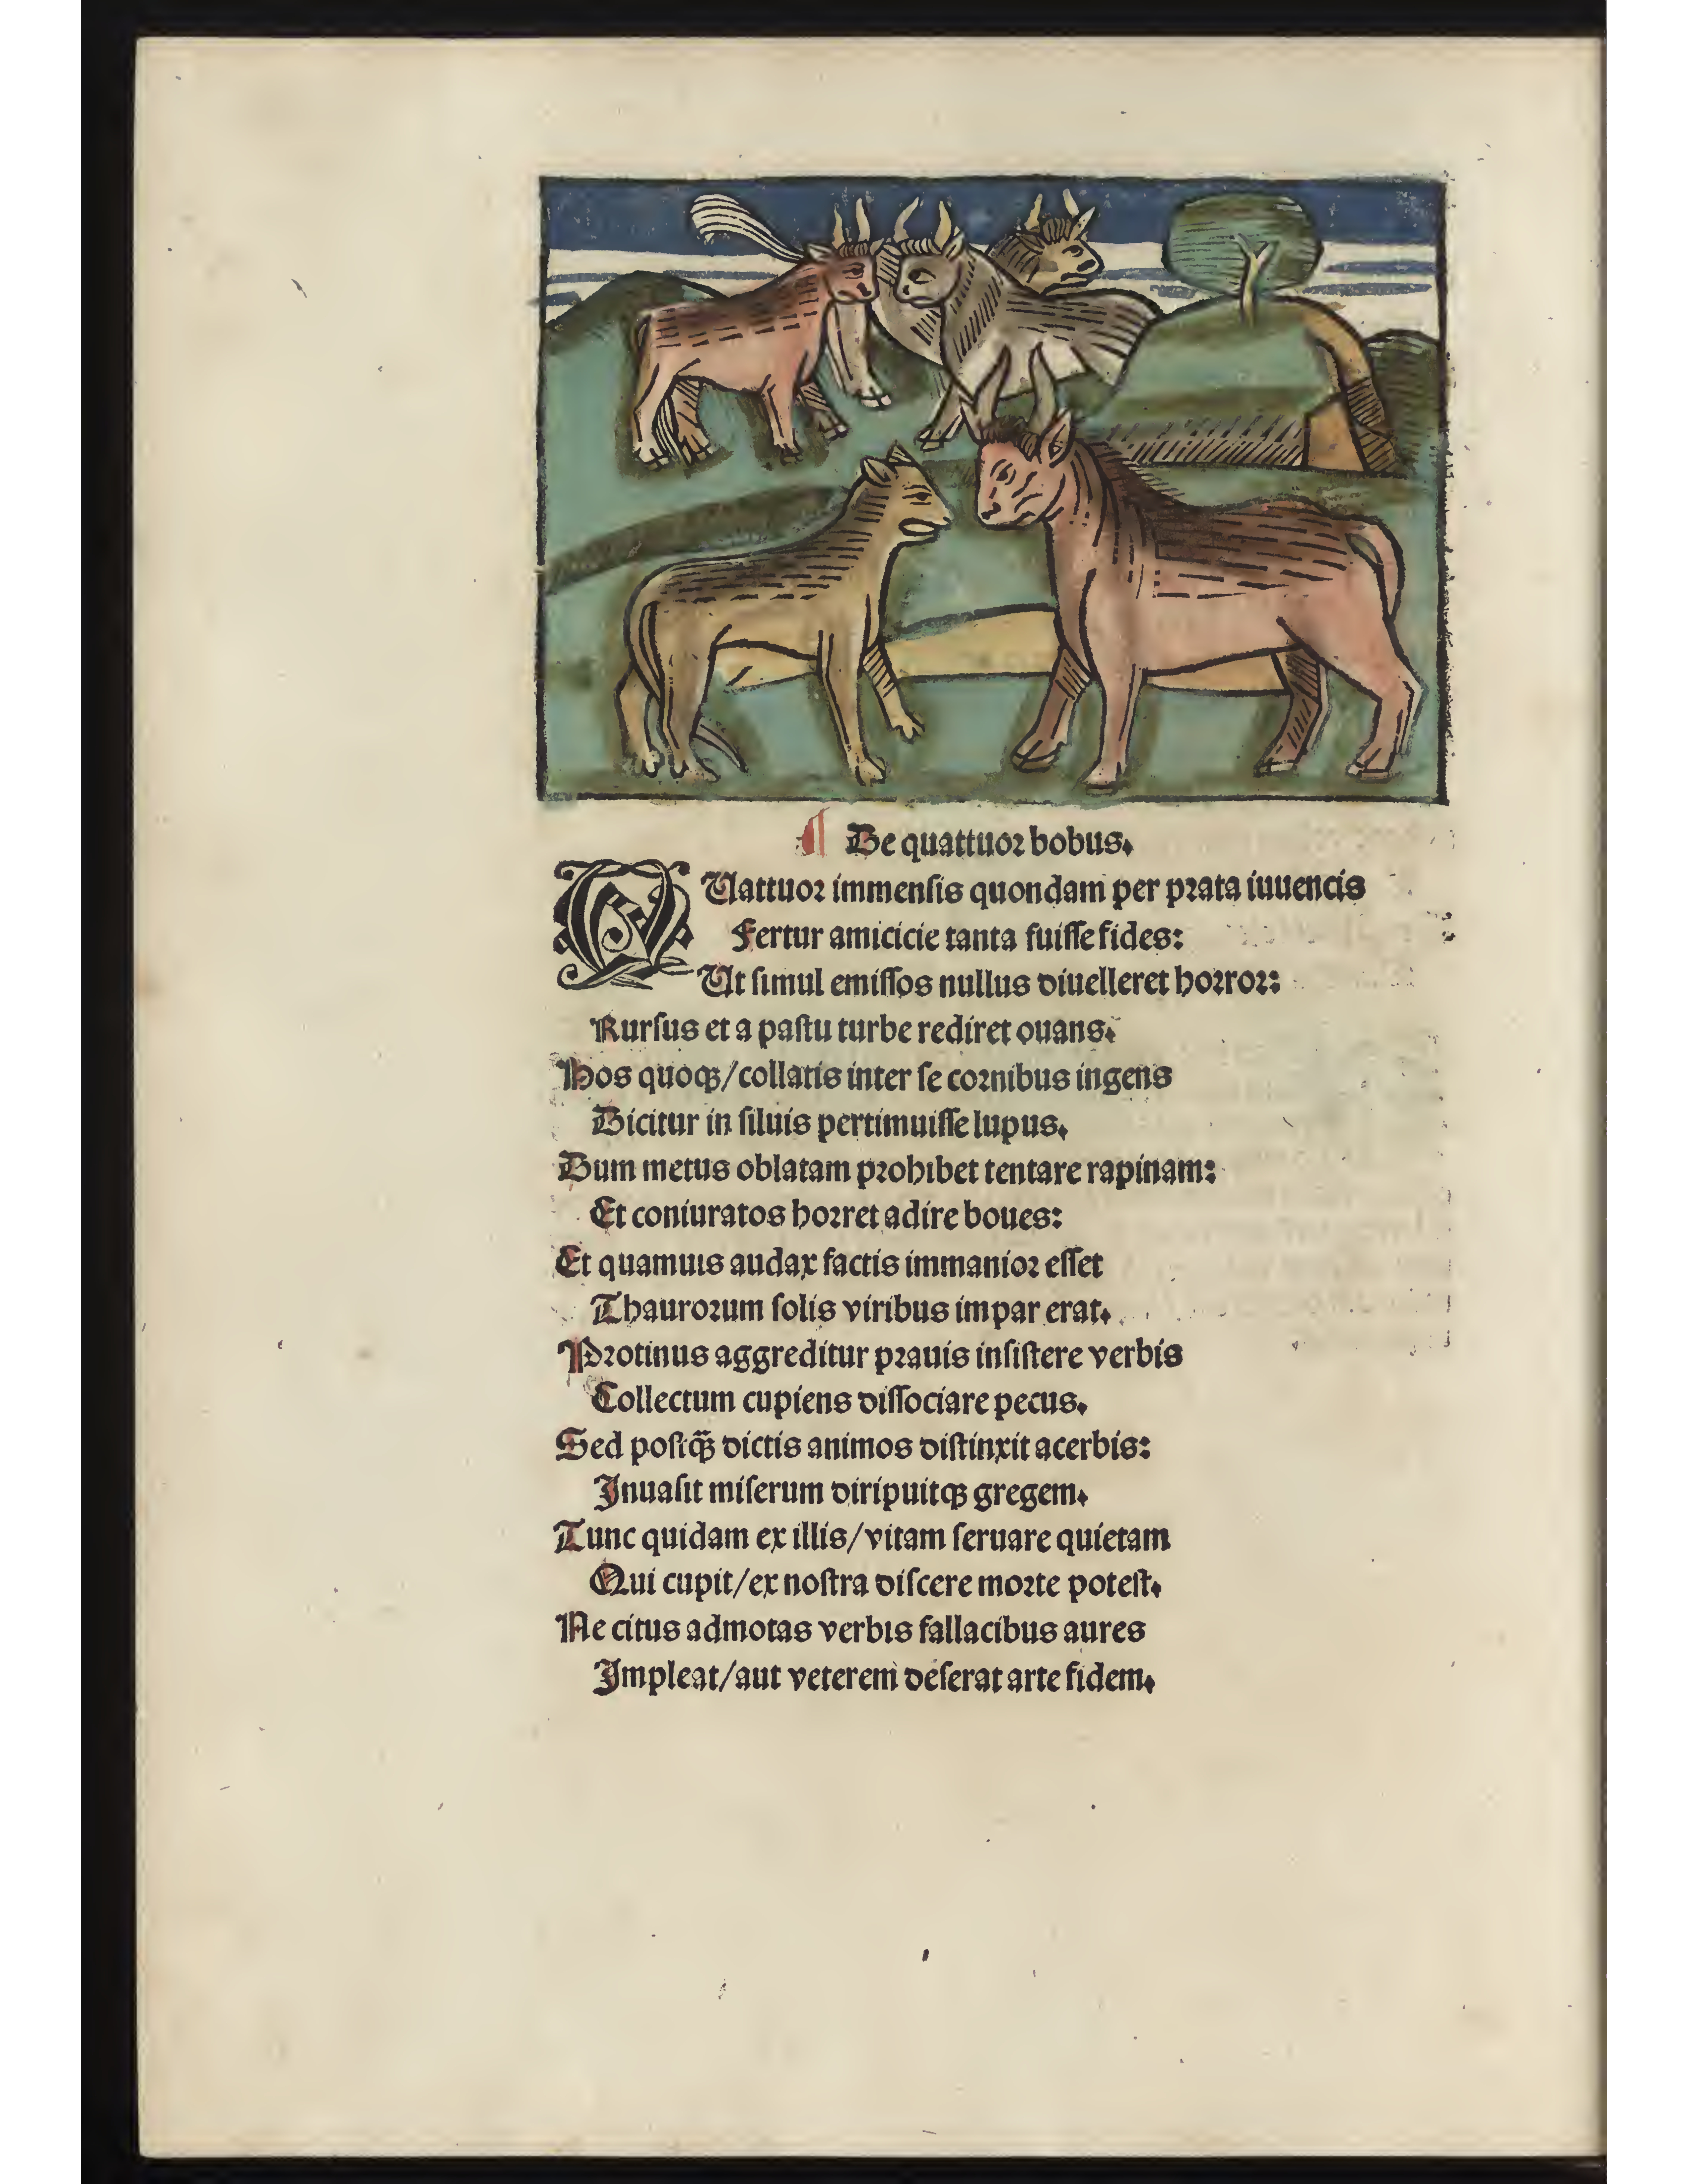 ¶ De quattuor bobus.
QUattuor immenſis quondam per prata iuuencis
Fertur amicicie tanta fuiſſe fides:
Ut ſimul emiſſos nullus diuelleret horror:
Rurſus et a paſtu turbe rediret ouans.
Hos quoqꝫ/collatis inter ſe cornibus ingens
Dicitur in ſiluis pertimuiſſe lupus.
Dum metus oblatam prohibet tentare rapinam:
Et coniuratos horret adire boues:
Et quamuis audax factis immanior eſſet
Thaurorum ſolis viribus impar erat.
Protinus aggreditur prauis inſiſtere verbis
Collectum cupiens diſſociare pecus.
Sed poſtqꝫ̃ dictis animos diſtinxit acerbis:
Inuaſit miſerum diripuitqꝫ gregem.
Tunc quidam ex illis/vitam ſeruare quietam
Qui cupit/ex noſtra diſcere morte poteſt.
Ne citus admotas verbis fallacibus aures
Impleat/aut veterem deſerat arte fidem.